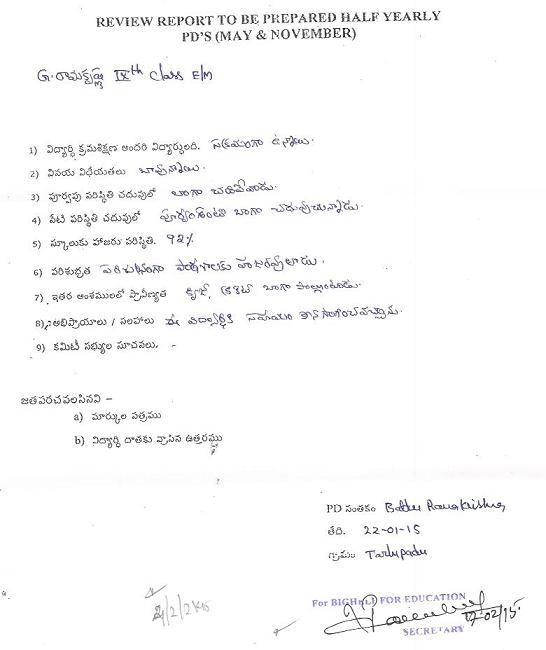 REVIEW REPORT TO BE PREPARED HALF YEARLY
PD'S (MAY & NOVEMBER)
G. రామకృష్ణ IXth class E/M
1) విద్యార్థి క్రమశిక్షణ అందరి విద్యార్థులది. సక్రమంగా ఉన్నాయి.
2) వినయ విధేయతలు బావున్నాయి.
3) పూర్వపు పరిస్థితి చదువులో బాగా చదివేవాడు.
4) నేటి పరిస్థితి చదువులో పూర్వంకంటే బాగా చదువుచున్నాడు.
5) స్కూలుకు హాజరు పరిస్థితి. 92%
6) పరిశుభ్రత పరిశుభ్రంగా పాఠశాలకు హాజరవుతాడు.
7) ఇతర అంశములలో ప్రావీణ్యత బాగా
8) అభిప్రాయాలు / సలహాలు ఈ విద్యార్థికి సహాయం
9) కమిటీ సభ్యుల సూచనలు. -
జతపరచవలసినవి –
a) మార్కుల పత్రము
b) విద్యార్థి దాతకు వ్రాసిన ఉత్తరము
PD సంతకం Battu Ramakrishna
తేది. 22-01-15
గ్రామం Tarlupadu
For BIGHELP FOR EDUCATION
17/02/15.
SECRETARY